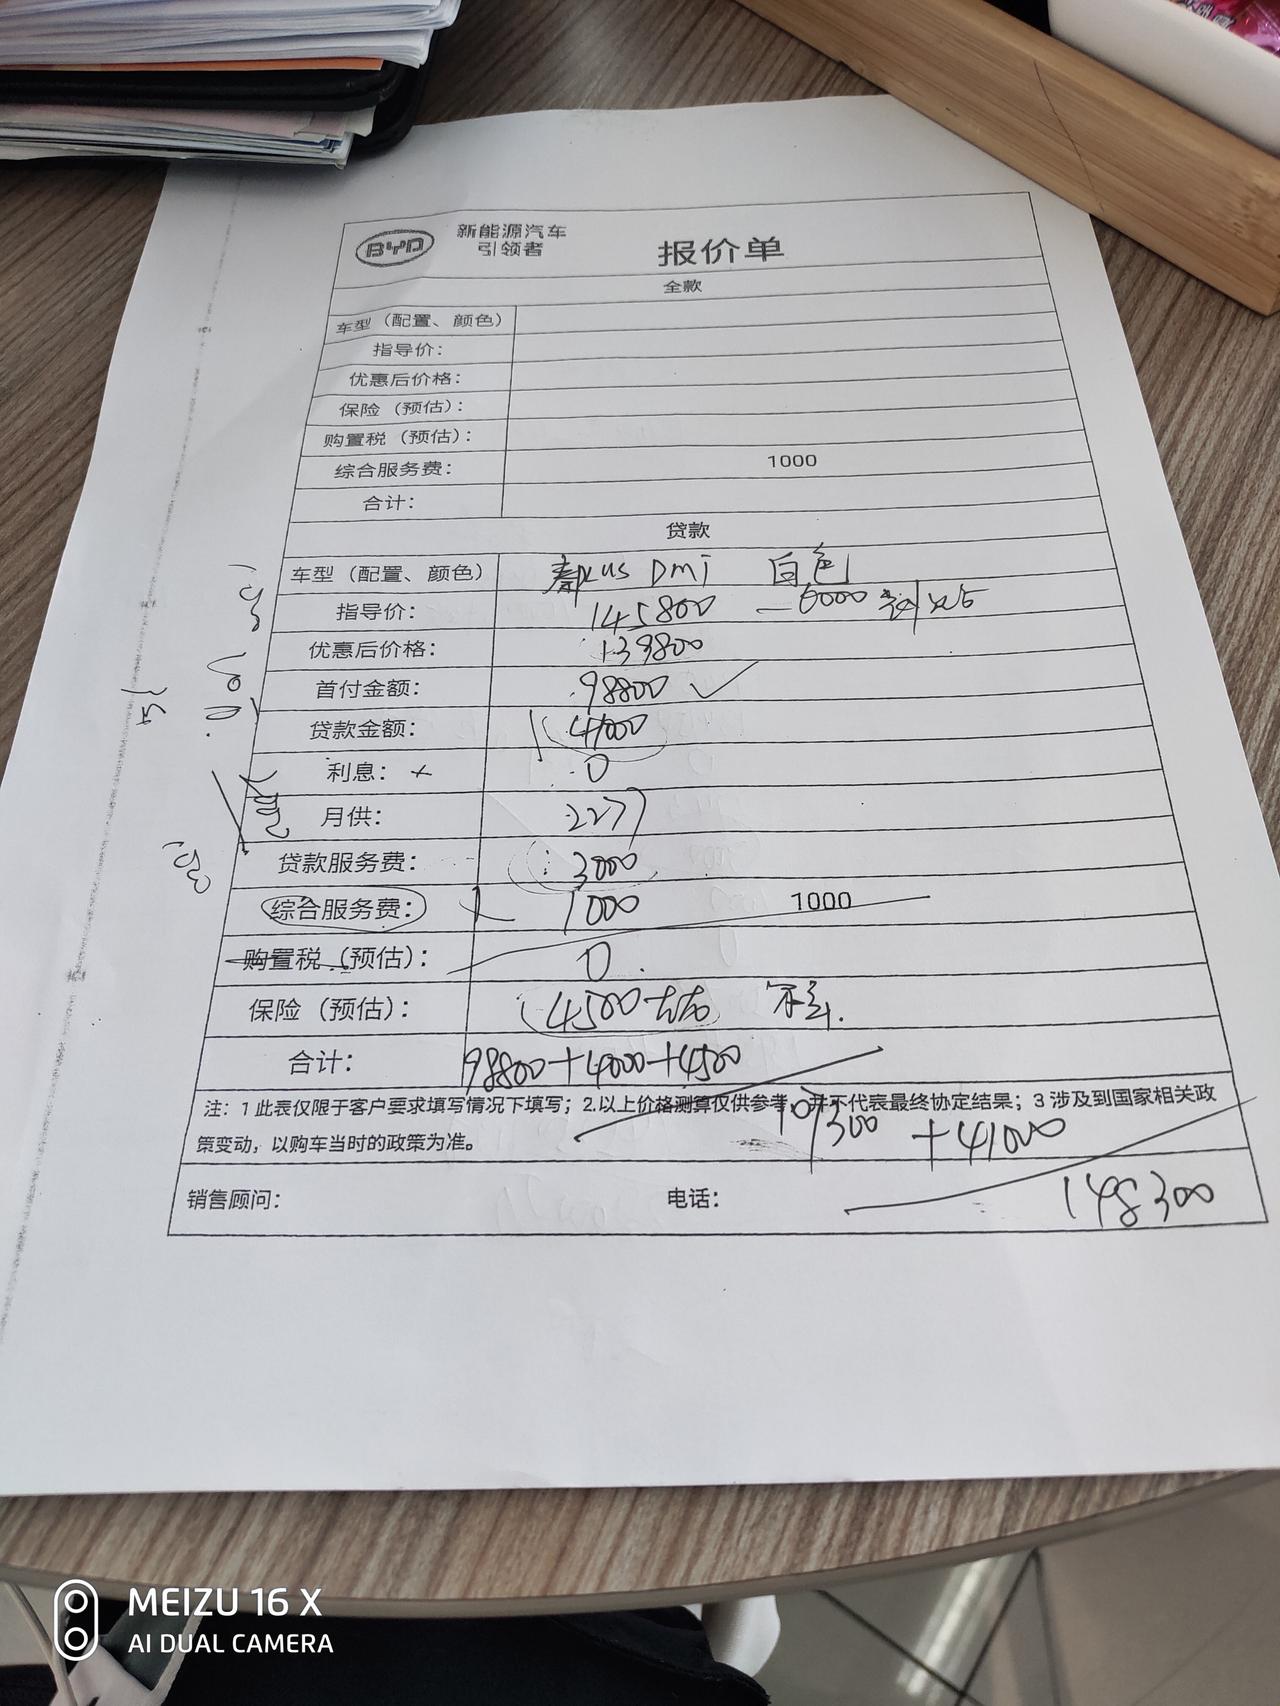 BYD 新能源汽车 报价单
引领者
全款
车型（配置、颜色）
指导价：
优惠后价格：
保险（预估）：
购置税（预估）：
综合服务费： 1000
合计：
贷款
车型（配置、颜色） 秦PLUS DMi 白色
指导价： 145800 —6000
优惠后价格： 139800
首付金额： 98800 ✓
贷款金额： 41000
利息： 0
月供： 2277
贷款服务费： 3000
综合服务费： 1000 1000
购置税（预估）： 0
保险（预估）： 4500左右
合计： 98800+4000+4500
注：1 此表仅限于客户要求填写情况下填写；2.以上价格测算仅供参考，并不代表最终协定结果；3 涉及到国家相关政
策变动，以购车当时的政策为准。
107300 +41000
销售顾问： 电话： 148300
MEIZU 16 X
AI DUAL CAMERA